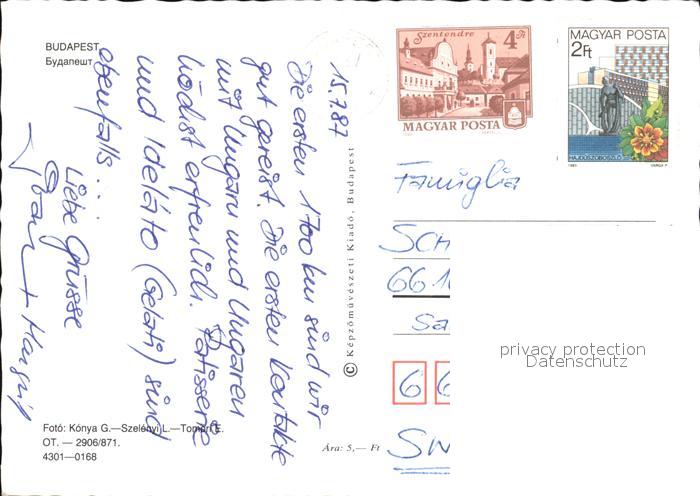 BUDAPEST
Будапешт
15.7.87
Die ersten 1700 km sind wir
gut gereist. Die ersten Kontakte
mit Ungarn und Ungaren
höchst erfreulich. Patisserie
und Idelàto (Gelati) sind
ebenfalls...
Liebe Grüsse
+ Margrit
Fotó: Kónya G.—Szelényi L.—Tomori E.
OT. — 2906/871.
4301—0168
Ára: 5,— Ft
© Képzőművészeti Kiadó, Budapest
Szentendre
4 Ft
MAGYAR POSTA
MAGYAR POSTA
2Ft
HAJDÚSZOBOSZLÓ
1983 VARGA P.
Famiglia
SCH
66.1
Sa
6 6
SW
privacy protection
Datenschutz